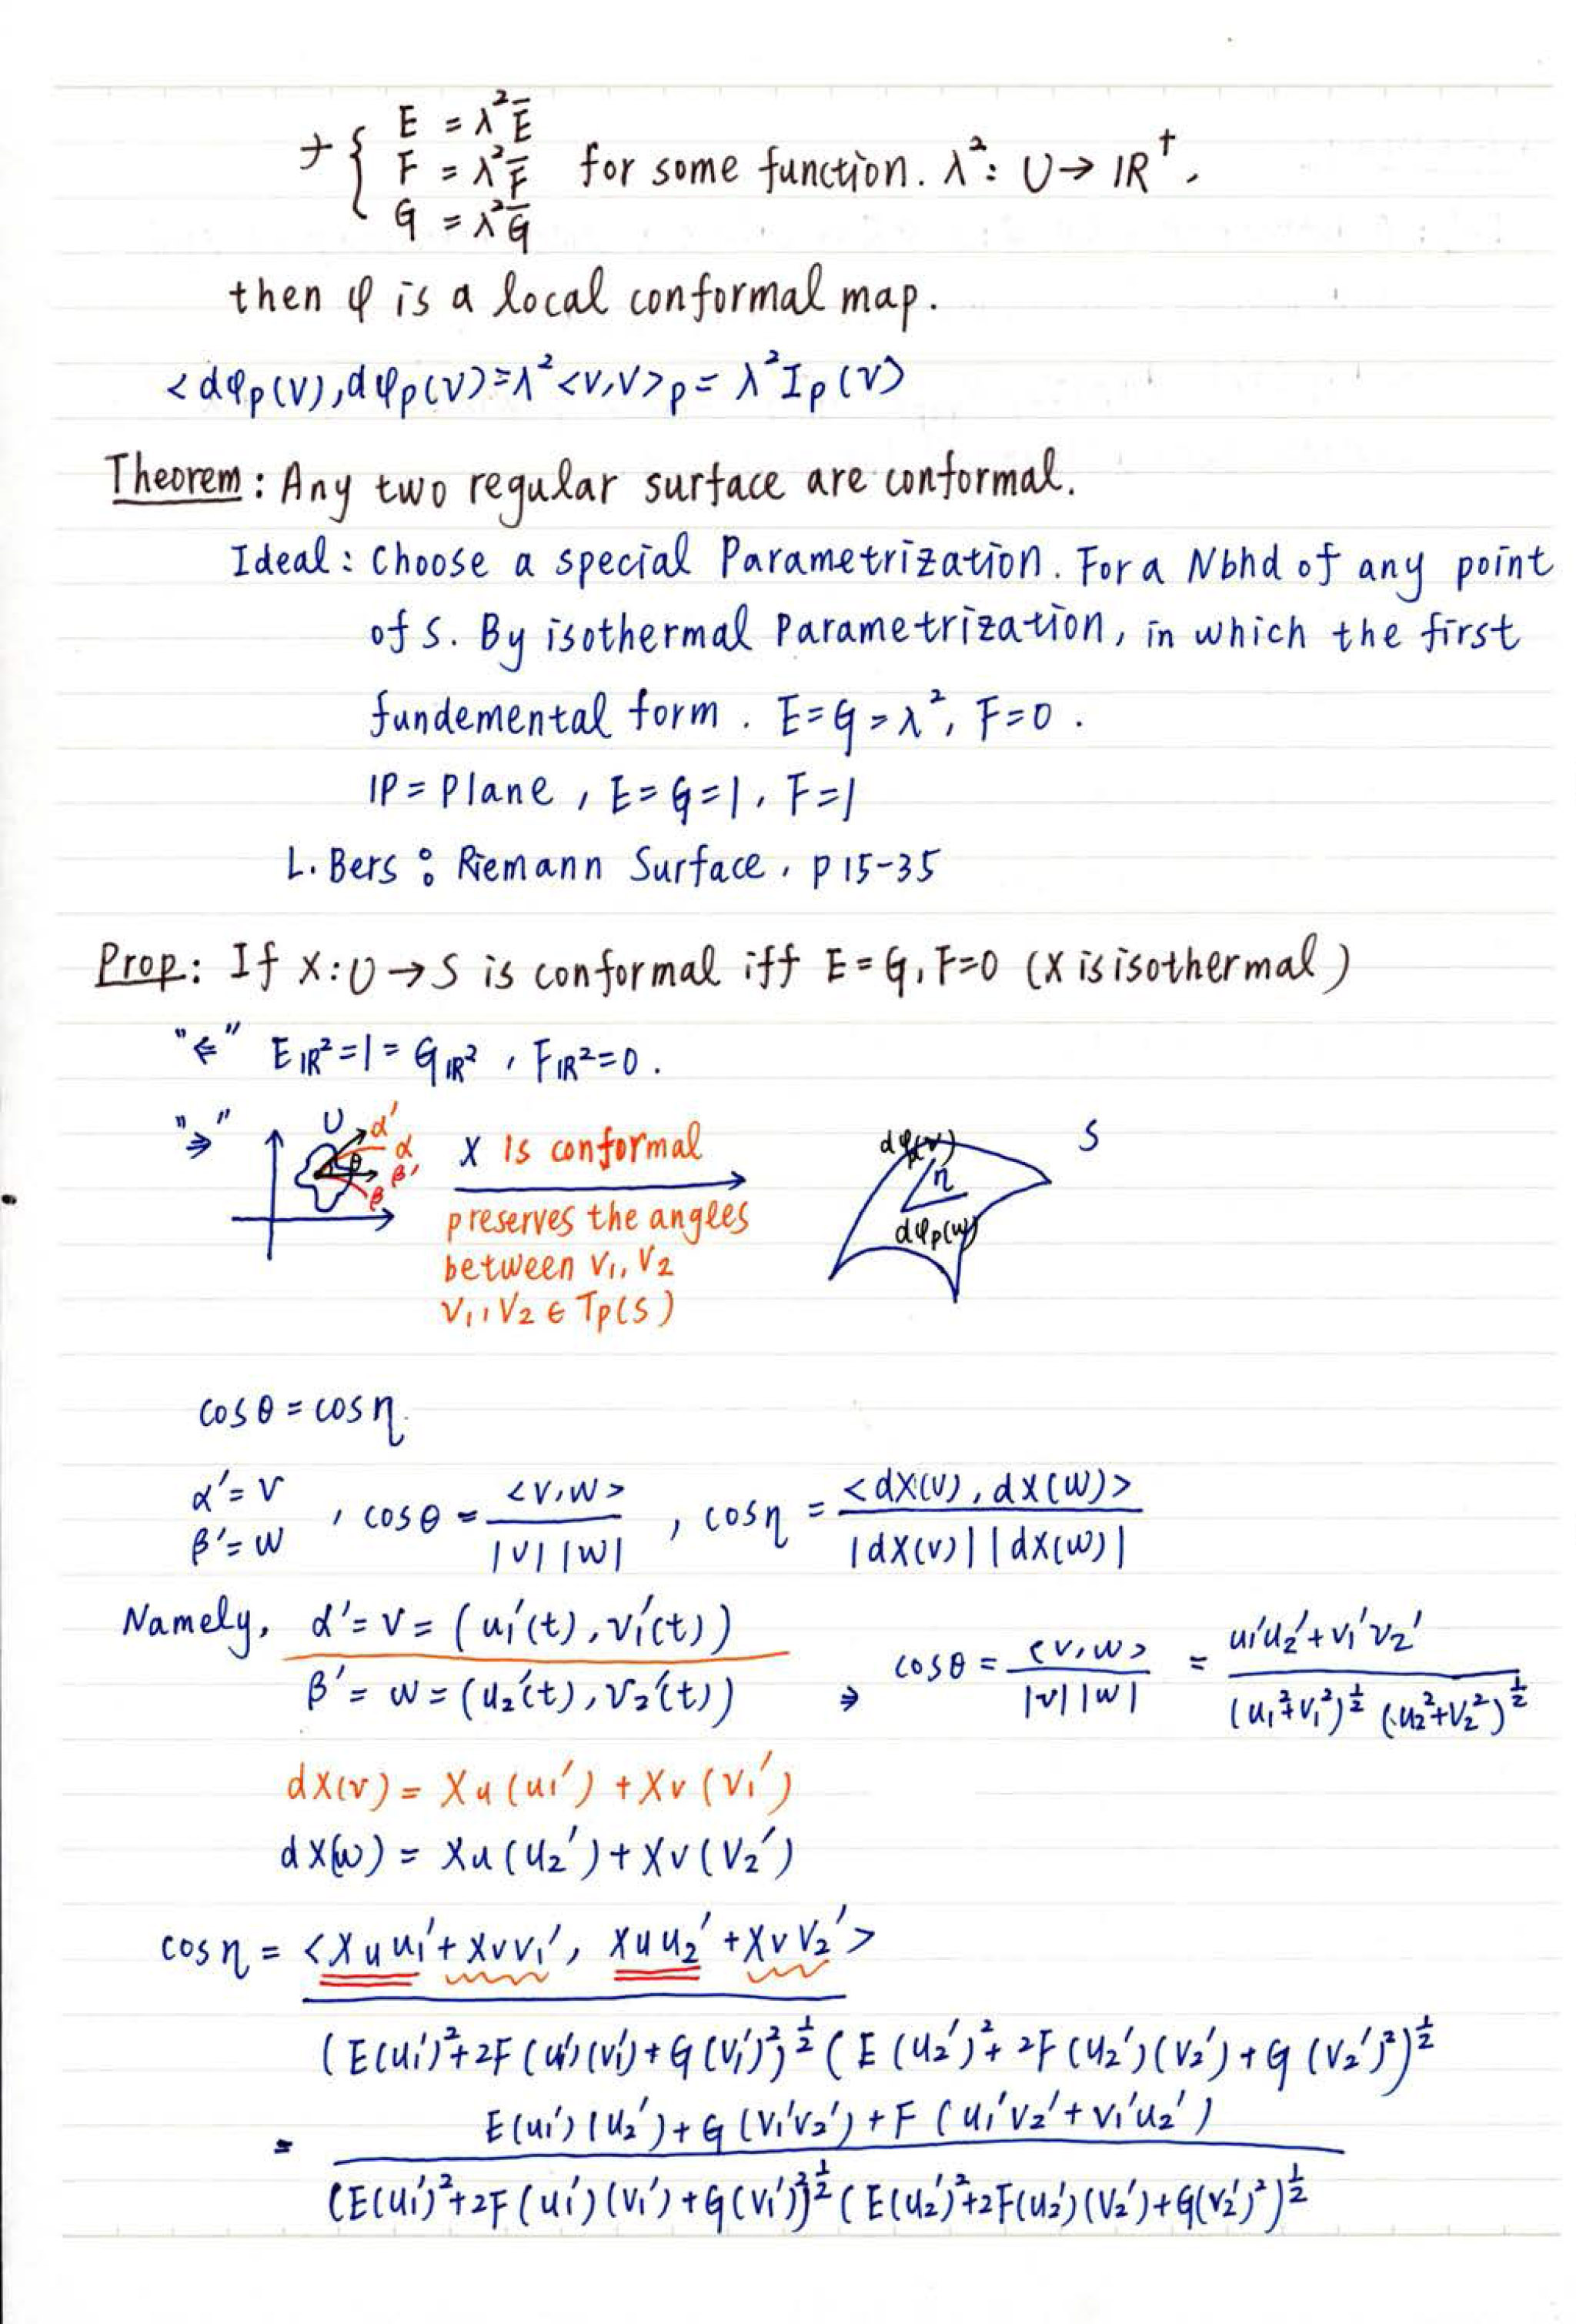 + { E = λ²Ē
F = λ²F̄ for some function. λ²: U → IR⁺.
G = λ²Ḡ
then φ is a local conformal map.
<dφp(v), dφp(v) = λ²<v,v>p = λ²Ip(v)
Theorem: Any two regular surface are conformal.
Ideal: Choose a special Parametrization. For a Nbhd of any point
of S. By isothermal Parametrization, in which the first
fundemental form. E=G=λ², F=0.
IP = Plane, E=G=1, F=1
L. Bers: Riemann Surface, P 15-35
Prop: If X: U → S is conformal iff E=G, F=0 (X is isothermal)
"⇐" E_IR²=1=G_IR², F_IR²=0.
"⇒" U α' α θ β' β X is conformal dφp(v) η dφp(w) S
preserves the angles
between V₁, V₂
V₁, V₂ ∈ Tp(S)
cosθ = cosη.
α'=v
β'=w , cosθ = <v,w> / |v||w| , cosη = <dX(v), dX(w)> / |dX(v)||dX(w)|
Namely, α'=v=(u₁'(t), v₁'(t))
β'=w=(u₂'(t), v₂'(t)) ⇒ cosθ = <v,w> / |v||w| = u₁'u₂'+v₁'v₂' / (u₁²+v₁²)^½ (u₂²+v₂²)^½
dX(v) = Xu(u₁') + Xv(v₁')
dX(w) = Xu(u₂') + Xv(v₂')
cosη = <Xuu₁'+Xvv₁', Xuu₂'+Xvv₂'>
(E(u₁')²+2F(u₁')(v₁')+G(v₁')²)^½ (E(u₂')²+2F(u₂')(v₂')+G(v₂')²)^½
= E(u₁')(u₂')+G(v₁'v₂')+F(u₁'v₂'+v₁'u₂')
(E(u₁')²+2F(u₁')(v₁')+G(v₁')²)^½ (E(u₂')²+2F(u₂')(v₂')+G(v₂')²)^½